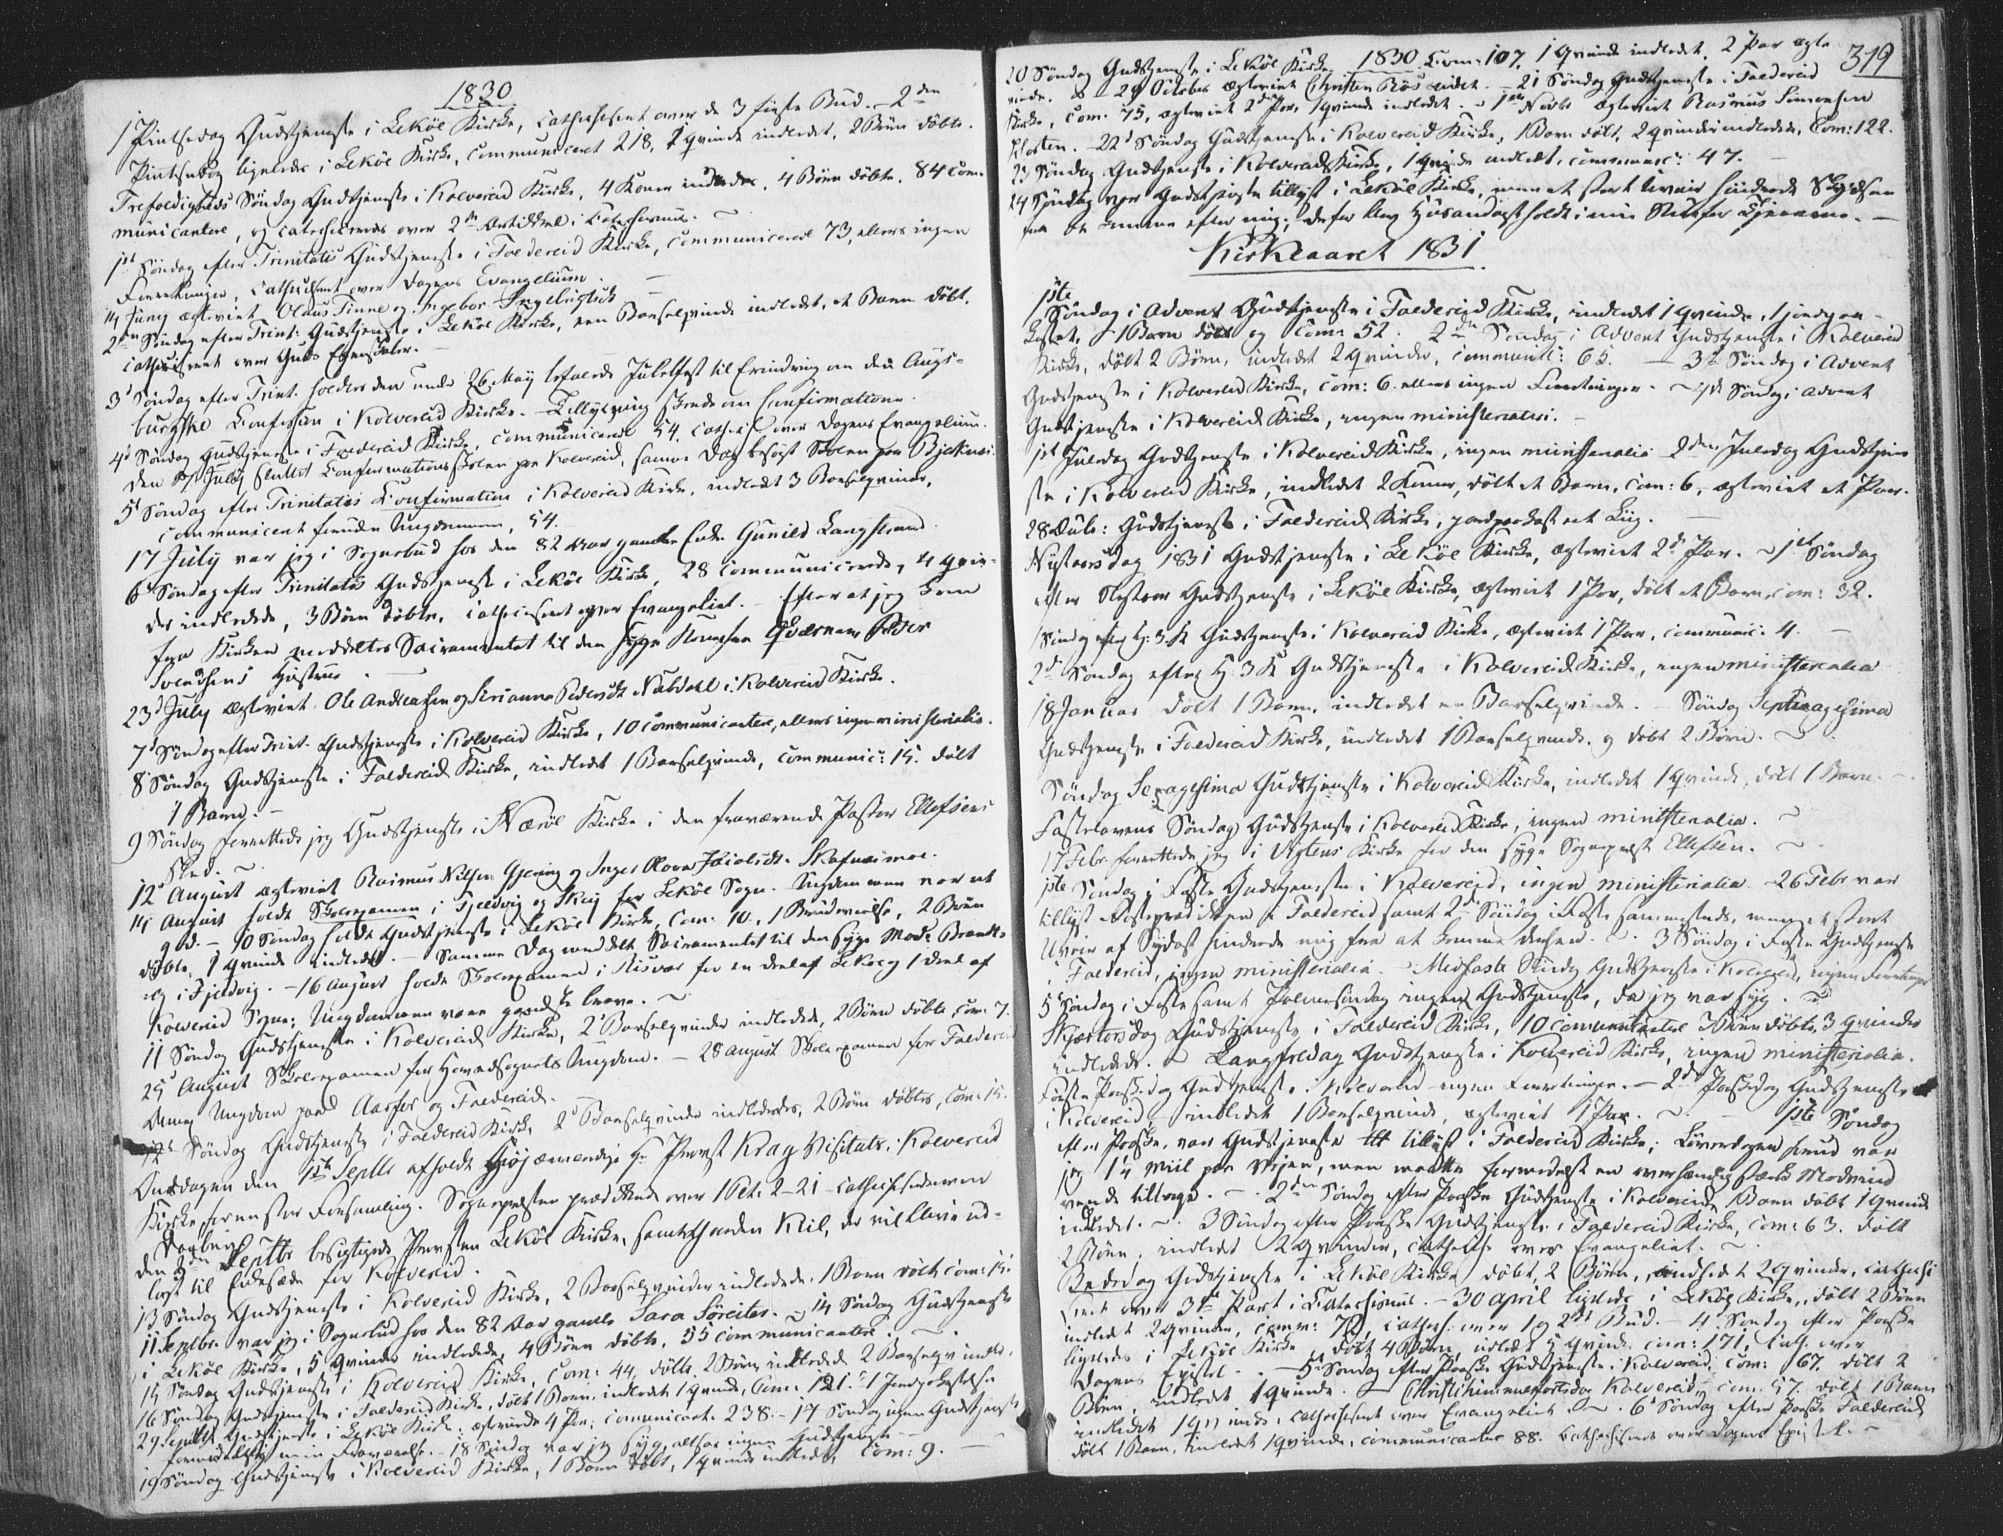 1830
1 Pintsedag Gudstjeneste i Lekøe Kirke, catechiseret over de 3 første Bud. - 2den
Pintsedag ligeledes i Lekøe Kirke, communiceret 218, 1 qvinde indledet, 2 Børn døbte.
Trefoldigheds Søndag Gudstjeneste i Kolvereid Kirke, 4 Koner indledet, 4 Børn døbte, 84 Com-
municantere, og catechiserede over 2den Artikkel i Catechismus.
1ste Søndag efter Trinitatis Gudstjeneste i Foldereid Kirke, communicerede 73, ellers ingen
Forretninger, Catechiseret over Dagens Evangelium.
14 Juny ægteviet Olaus Finne og Ingebor Ingebrigtsdt
2den Søndag efter Trinit: Gudstjeneste i Lekøe Kirke, een Barselqvinde indledet, et Barn døbt,
catechiseret over Guds Egenskaber.
3d Søndag efter Trinit. holdtes den under 26 May befalede Jubelfest til Erindring om den Augs-
burgske Confession i Kolvereid Kirke. - Tillysning skede om Confirmationen.
4d Søndag Gudstjeneste i Foldereid Kirke, communicerede 54, catech: over Dagens Evangelium.
Den July sluttet Confirmations Skolen paa Kolvereid, samme Dag besøgt Skolen paa Bjerknes.
5t Søndag efter Trinitatis Confirmation i Kolvereid Kirke, indledt 3 Barselqvinder,
communiceret foruden Ungdommen, 54.
17 July var jeg i Sognebud hos den 82 Aar gamle Enke Gunild Langstrand.
6te Søndag efter Trinitatis Gudstjeneste i Lekøe Kirke, 28 communicerede, 4 qvin-
der indledede, 3 Børn døbte, catechiseret over Evangeliet. - Efter at jeg kom
fra Kirken meddeltes Sacramentet til den syge Peder
Svendsens Hustrue.
23d July ægteviet Ole Andreassen og Serianna Pedersdt Nubdahl i Kolvereid Kirke.
7d Søndag efter Trint. Gudstjeneste i Kolvereid Kirke, 10 Communicantere, ellers ingen ministerialia.
8 Søndag Gudstjeneste i Foldereid Kirke, indledet 1 Barselqvinde, communic: 15. døbt
1 Barn. -
9 Søndag forrettede jeg Gudstjeneste i Nærøe Kirke i den fraværende Pastor Ellefsens
Sted.
12 August ægteviet Rasmus Nilsen Gjering og Inger Jacobsdt. Skafnæsmoe.
14 August holdt Skoleexamen i Fjeldvig og Skej for Lekøe Sogn. Ungdommen var et
god. - 10 Søndag holdt Gudstjeneste i Lekøe Kirke, Com: 10, 1 Brudevielse, 2 Børn
døbte, 1 qvinde indledet. - Samme Dag meddelt Sacramentet til den syge Mads Brandts-
øg i Fjeldvig. - 16 August holdt Skoleexamen i Risvær for en deel af Lekøe og 1 deel af
Kolvereid Sogne; Ungdommen vare gandske brave.
11 Søndag Gudstjeneste i Kolvereid Kirke, 2 Barselqvinder indledede, 2 Børn døbte, com: 7.
25 August Skoleexamen for Hovedsognets Ungdom. - 28 August Skoleexamen for Foldereid
Ungdom paa Aarfor og Foldereid.
12te Søndag Gudstjeneste i Foldereid Kirke 2 Barselqvinder indlededes, 2 Børn døbtes, Com: 15.
Onsdagen den 1ste Septbr afholdt Høiærværdige Hr Provst Krag Visitats i Kolvereid
Kirke for en stor Forsamling. Sognepræsten prædikede over 1 Pet. 2-21 - catechiserede over
Daaben.
Den 3den Septbr besigtigede Provsten Lekøe Kirke, samt Gaarden Kiil, der vil blive ud-
lagt til Enkesæde for Kolvereid.
13 Søndag Gudstjeneste i Kolvereid Kirke, 2 Barselqvinder indledede, 1 Barn døbt, com: 15.
11 Septbr. var jeg i Sognebud hos den 82 Aar gamle Sara Søreiter. - 14 Søndag Gudstjeneste
i Lekøe Kirke, 5 qvinder indledede, 4 Børn døbte, 55 communicantere.
15 Søndag Gudstjeneste i Kolvereid Kirke, Com: 44, døbte 2 Børn, indledede 2 Barselqvinder.
16 Søndag Gudstjeneste i Foldereid Kirke, døbt 1 Barn, indledet 1 qvinde, Com: 121. 1 Jordpaakastelse
29 Septbr Gudstjeneste i Lekøe Kirke, ægteviede 4 Par, comunicante 238. - 17 Søndag ingen Gudstjeneste
formedelst min Fraværelse. - 18 Søndag var jeg syg, altsaa ingen Gudstjeneste -
19 Søndag Gudstjeneste i Kolvereid Kirke, 1 Barn døbt, 1 qvinde indledet, Com: 9.
319
20 Søndag Gudstjeneste i Lekøe Kirke, 1830 Com: 107, 1 qvinde indledet, 2 Par ægte
viede. - 29 October ægteviet Christen Røs - 21 Søndag Gudstjeneste i Foldereid
Kirke, Com: 75, ægteviet 2 Par, 1 qvinde indledet. - 1ste Novbr ægteviet Rasmus Simonsen
Kloster. - 22d Søndag Gudstjeneste i Kolvereid Kirke, 1 Barn døbt, 2 qvinder indledede, Com: 122.
23 Søndag Gudstjeneste i Kolvereid Kirke, 1 qvinde indledt, communic: 47.
24 Søndag var Gudstjeneste tillyst i Lekøe Kirke, men et stort Uveir hindrede Skydsen
fra at komme efter mig; derfor blev Husandagt holdt i min Stue for Tjenerne. -
Kirkeaaret 1831.
1ste
Søndag i Advent Gudstjeneste i Foldereid Kirke, indledt 1 qvinde, 1 jordpaa-
kastet, 1 Barn døbt og Com: 52. 2den Søndag i Advent Gudstjeneste i Kolvereid
Kirke, døbt 2 Børn, indledt 2 qvinder, communic: 65. - 3die Søndag i Advent
Gudstjeneste i Kolvereid Kirke, com: 6. ellers ingen Forretninger. - 4de Søndag i Advent
Gudstjeneste i Kolvereid Kirke, ingen ministerialia. -
1ste Juledag Gudstjeneste i Kolvereid Kirke, ingen ministerialia 2den Juledag Gudstjene
ste i Kolvereid Kirke, indledet 2 Koner, døbt et Barn, Com: 6, ægteviet et Par.
28 Decb: Gudstjeneste i Foldereid Kirke, jordpaakastet eet Liig. -
Nytaarsdag 1831 Gudstjeneste i Lekøe Kirke, ægteviet 2d Par. - 1ste Søndag
efter Nytaar Gudstjeneste i Lekøe Kirke, ægteviet 1 Par, døbt et Barn, com: 32.
1 Søndag efter H: 3 K Gudstjeneste i Kolvereid Kirke, ægteviet 1 Par, communic: 4. -
2d Søndag efter H: 3 K Gudstjeneste i Kolvereid Kirke, ingen ministerialia
18 Januar døbt 1 Barn, indledet en Barselqvinde. - Søndag Septuagesima
Gudstjeneste i Foldereid Kirke, indledet 1 Barselqvinde, og døbt 2 Børn.
Søndag Sexagesima Gudstjeneste i Kolvereid Kirke, indledet 1 qvinde, døbt 1 Barn. -
Fastelavens Søndag Gudstjeneste i Kolvereid Kirke, ingen ministerialia.
17 Febr. forrettede jeg i Vigtens Kirke for den syge Sognepræst Ellefsen.
1ste Søndag i Faste Gudstjeneste i Kolvereid, ingen ministerialia - 26 Febr var
tillyst Fasteprædikken i Foldereid samt 2d Søndag i Faste sammesteds, men et stort
Uveir af Sydost hindrede mig fra at komme derhen. - 3d Søndag i Faste Gudstjeneste
i Foldereid, ingen ministerialia. - Midfaste Søndag Gudstjeneste i Kolvereid, ingen Forretninger
5te Søndag i Faste samt Palmesøndag ingen Gudstjeneste, da jeg var syg.
Skjærtorsdag Gudstjeneste i Foldereid Kirke, 10 Comunicantere 3 Børn døbte, 3 qvinder
indledede. - Langfredag Gudstjeneste i Kolvereid Kirke, ingen ministerialia.
Første Paaskedag Gudstjeneste i Kolvereid ingen Forretninger. - 2den Paaskedag Gudstjeneste
i Kolvereid, indledet 1 Barselqvinde, ægteviet 1 Par. - 1ste Søndag
efter Paaske, var Gudstjeneste tillyst i Foldereid Kirke; Løverdagen forud var
jeg 1¼ Miil paa Vejen, men maatte formedelst en overhændig stærk Modvind
vende tilbage. - 2den Søndag efter Paaske Gudstjeneste i Kolvereid, Barn døbt 1 qvinde
indledet. - 3 Søndag efter Paaske Gudstjeneste i Foldereid Kirke, com: 63. døbt
2 Børn, indledt 2 qvinder, catechise over Evangeliet.
Bededag Gudstjeneste i Lekøe Kirke døbt 2 Børn, indledet 2 qvinder, catechi-
seret over 3die Part i Catechismus. - 30 April ligeledes i Lekøe Kirke, døbt 2 Børn
indledet 2 qvinder, comm: 70, catech: over 1 og 2det Bud. - 4 Søndag efter Paaske
ligeledes i Lekøe Kirke, døbt 4 Børn, indledt 5 qvind. com: 171, Cath. over
Dagens Epistel. - 5te Søndag efter Paaske Gudstjeneste i Kolvereid, com: 67. døbt 2
Børn, indledet 1 qvinde. - Christi himmelfartsdag Kolvereid, com: 57. døbt 1 Barn
indledet 1 qvinde, catechiseret over Evangeliet. - 6te Søndag efter Paaske Foldereid
døbt 1 Barn, indledet 1 qvinde, communicanter 88. Catechiserede over Dagens Epistel. -